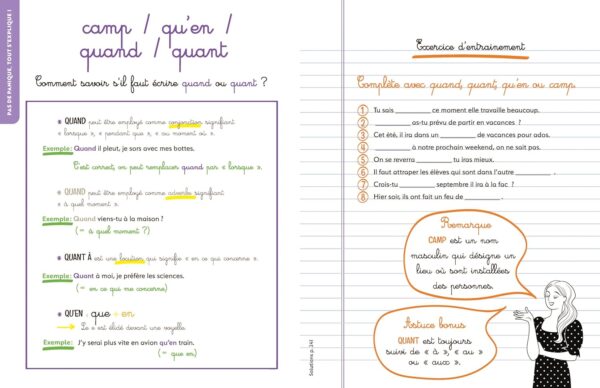 PAS DE PANIQUE, TOUT S'EXPLIQUE !
camp / qu'en /
quand / quant
Comment savoir s'il faut écrire quand ou quant ?
QUAND peut être employé comme conjonction signifiant
« lorsque », « pendant que », « au moment où ».
Exemple : Quand il pleut, je sors avec mes bottes.
C'est correct, on peut remplacer quand par « lorsque ».
QUAND peut être employé comme adverbe signifiant
« à quel moment ».
Exemple : Quand viens-tu à la maison ?
(= à quel moment ?)
QUANT À est une locution qui signifie « en ce qui concerne ».
Exemple : Quant à moi, je préfère les sciences.
(= en ce qui me concerne)
QU'EN : que + en
Le e est élidé devant une voyelle.
Exemple : J'y serai plus vite en avion qu'en train.
(= que en)
Exercice d'entrainement
Complète avec quand, quant, qu'en ou camp.
1 Tu sais __________ ce moment elle travaille beaucoup.
2 __________ as-tu prévu de partir en vacances ?
3 Cet été, il ira dans un __________ de vacances pour ados.
4 __________ à notre prochain weekend, on ne sait pas.
5 On se reverra __________ tu iras mieux.
6 Il faut attraper les élèves qui sont dans l'autre __________ .
7 Crois-tu __________ septembre il ira à la fac ?
8 Hier soir, ils ont fait un feu de __________ .
Remarque
CAMP est un nom
masculin qui désigne un
lieu où sont installées
des personnes.
Astuce bonus
QUANT est toujours
suivi de « à », « au »
ou « aux ».
Solutions p. 241